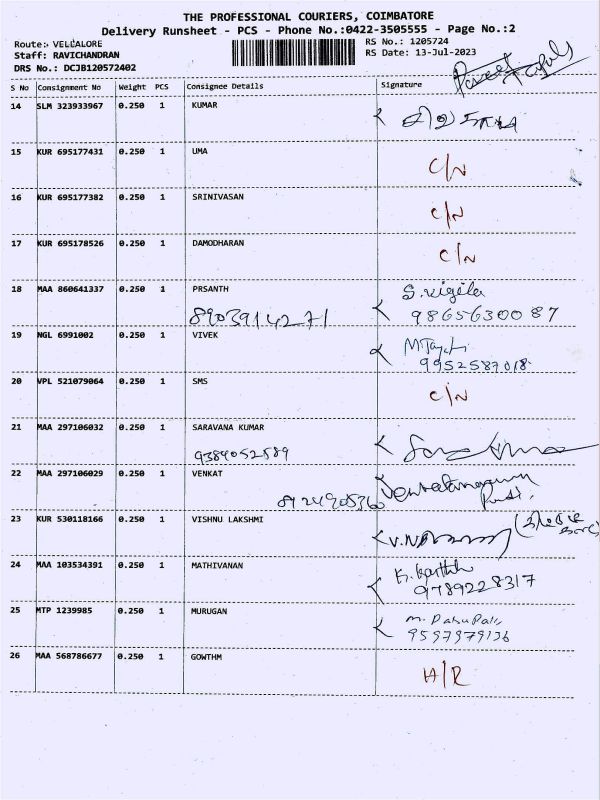 THE PROFESSIONAL COURIERS, COIMBATORE
Delivery Runsheet - PCS - Phone No.:0422-3505555 - Page No.:2
Route:- VELLALORE RS No.: 1205724
Staff: RAVICHANDRAN RS Date: 13-Jul-2023
DRS No.: DCJB120572402
S No Consignment No Weight PCS Consignee Details Signature
14 SLM 323933967 0.250 1 KUMAR
15 KUR 695177431 0.250 1 UMA C/N
16 KUR 695177382 0.250 1 SRINIVASAN C/N
17 KUR 695178526 0.250 1 DAMODHARAN C/N
18 MAA 860641337 0.250 1 PRSANTH S.vigila
8903914271 9865630087
19 NGL 6991002 0.250 1 VIVEK
9952587018
20 VPL 521079064 0.250 1 SMS C/N
21 MAA 297106032 0.250 1 SARAVANA KUMAR
9384052589
22 MAA 297106029 0.250 1 VENKAT
8924905360
23 KUR 530118166 0.250 1 VISHNU LAKSHMI
24 MAA 103534391 0.250 1 MATHIVANAN K. Karthi
9789228317
25 MTP 1239985 0.250 1 MURUGAN
9597979136
26 MAA 568786677 0.250 1 GOWTHM H/R